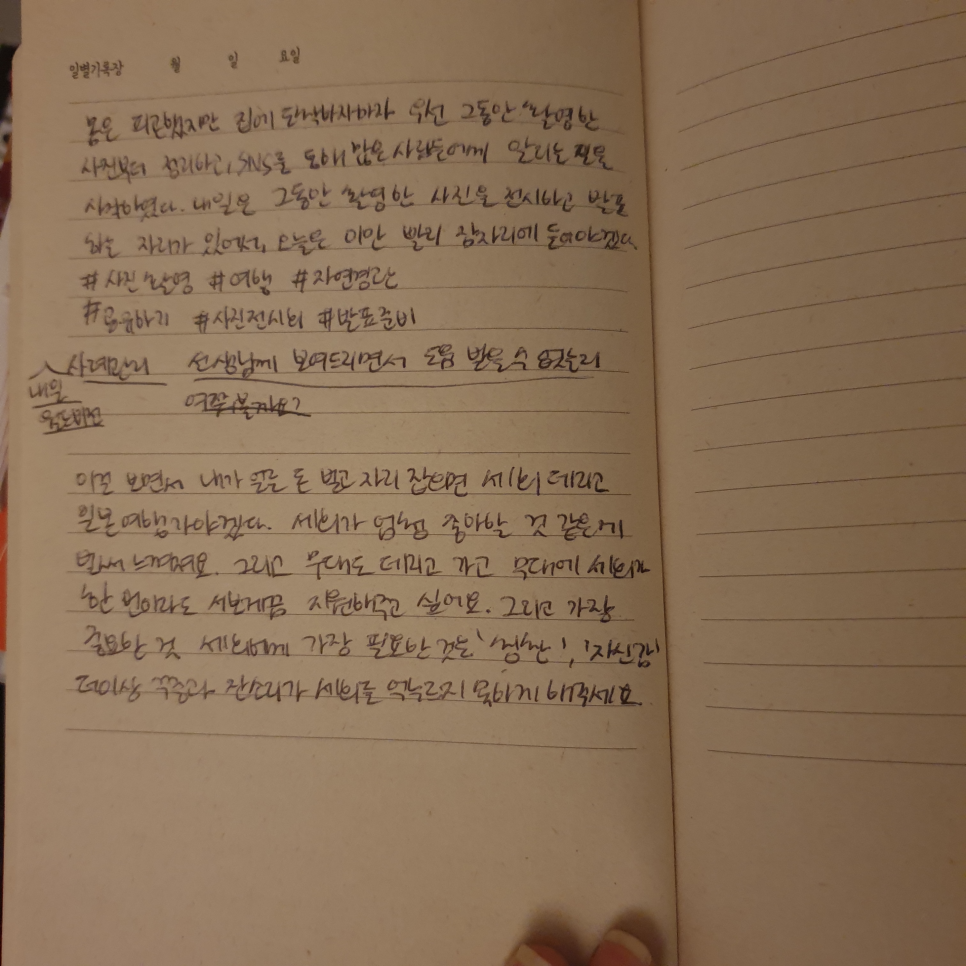 일별기록장 월 일 요일
몸은 피곤했지만 집에 도착하자마자 우선 그동안 촬영한
사진부터 정리하고, SNS를 통해 많은 사람들에게 알리는 일을
시작하였다. 내일은 그동안 촬영한 사진을 전시하고 발표
하는 자리가 있어서, 오늘은 이만 빨리 잠자리에 들어야겠다.
#사진촬영 #여행 #자연경관
#공유하기 #사진전시회 #발표준비
사례관리 선생님께 보여드리면서 도움 받을 수 있는지
내일 여쭤볼까요?
이걸 보면서 내가 얼른 돈 벌고 자리 잡으면 세희 데리고
일본여행가야겠다. 세희가 엄청 좋아할 것 같은게
벌써 느껴져요. 그리고 무대도 데리고 가고 무대에 세희가
한 번이라도 서보게끔 지원해주고 싶어요. 그리고 가장
중요한 것 세희에게 가장 필요한 것은 '칭찬', '자신감'
더이상 꾸중과 잔소리가 세희를 억누르지 못하게 해주세요.